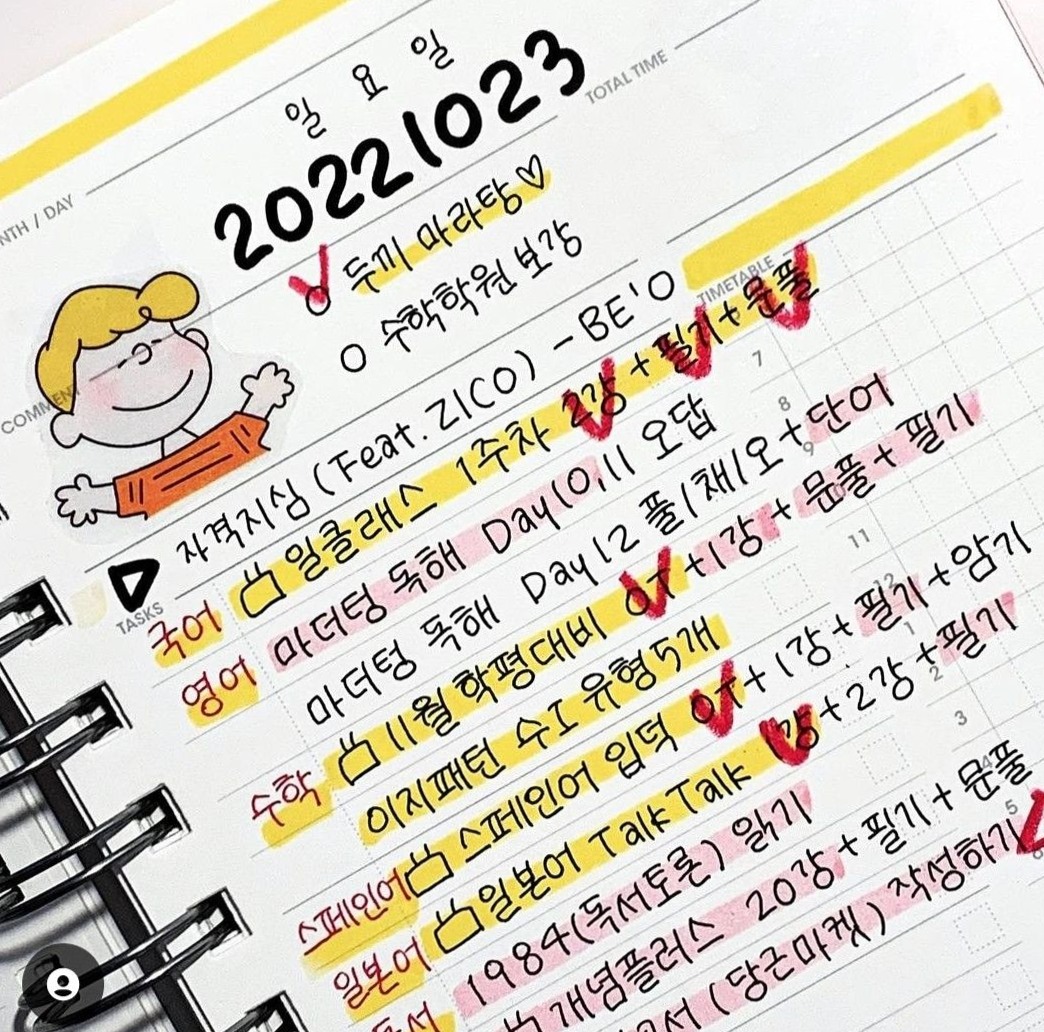 일요일
20221023
TOTAL TIME
NTH / DAY
두끼 마라탕♡
O 수학학원 보강
TIMETABLE
COMMENT
자격지심 (Feat. ZICO) - BE'O
TASKS
국어 일클래스 1주차 2강 + 필기 + 문풀
영어 마더텅 독해 Day10,11 오답
마더텅 독해 Day12 풀/채/오 + 단어
수학 11월 학평대비 OT + 1강 + 문풀 + 필기
이지패턴 수I 유형5개
스페인어 스페인어 입덕 OT + 1강 + 필기 + 암기
일본어 일본어 Talk Talk 1강 + 2강 + 필기
독서 1984(독서토론) 읽기
개념플러스 20강 + 필기 + 문풀
(당근마켓) 작성하기
7
8
9
11
12
1
2
3
4
5
6